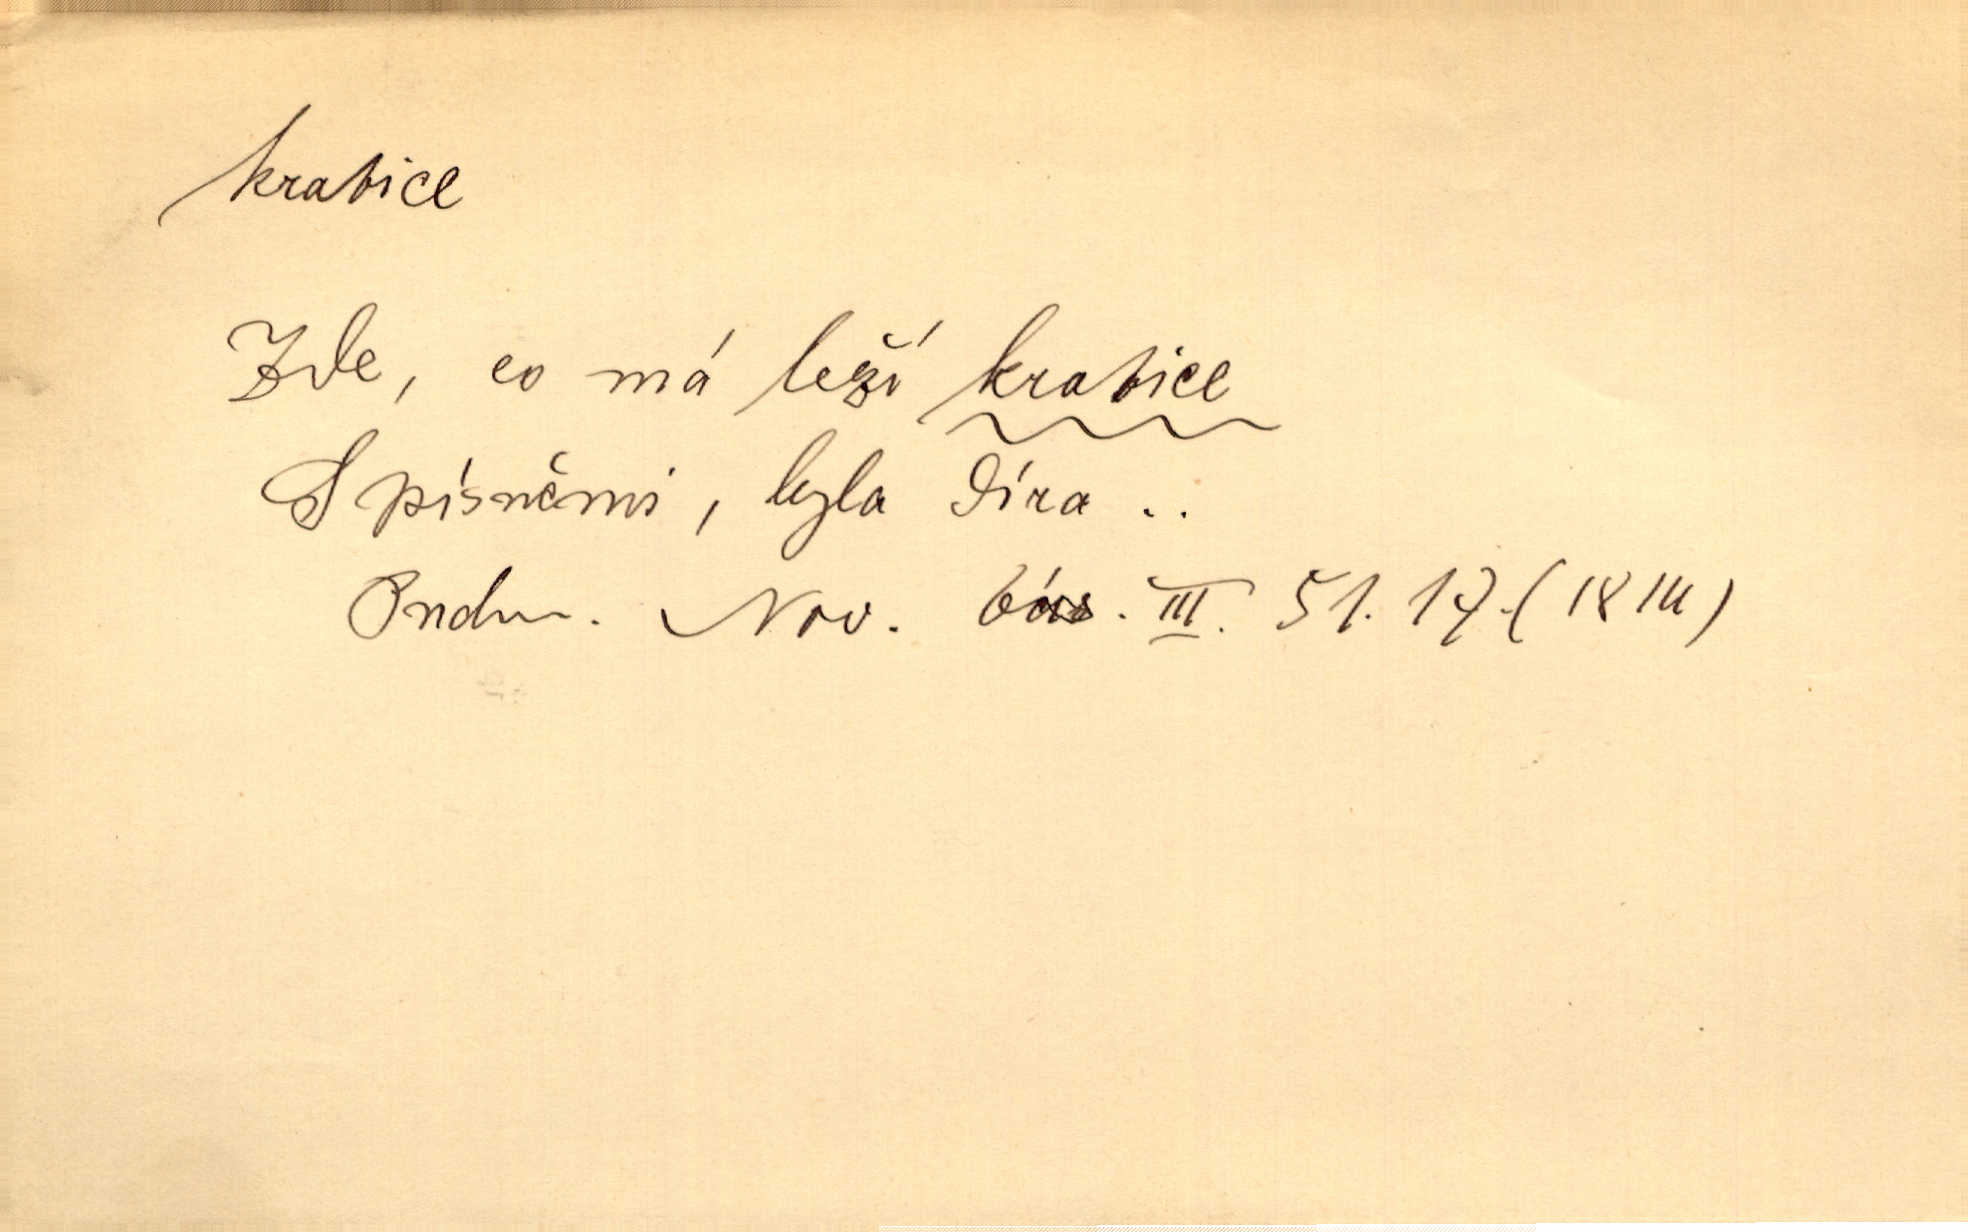 krabice
Zde, co má leží krabice
S písněmi, byla díra ..
Puchm. Nov. bás. III. 51. 17. (1814)